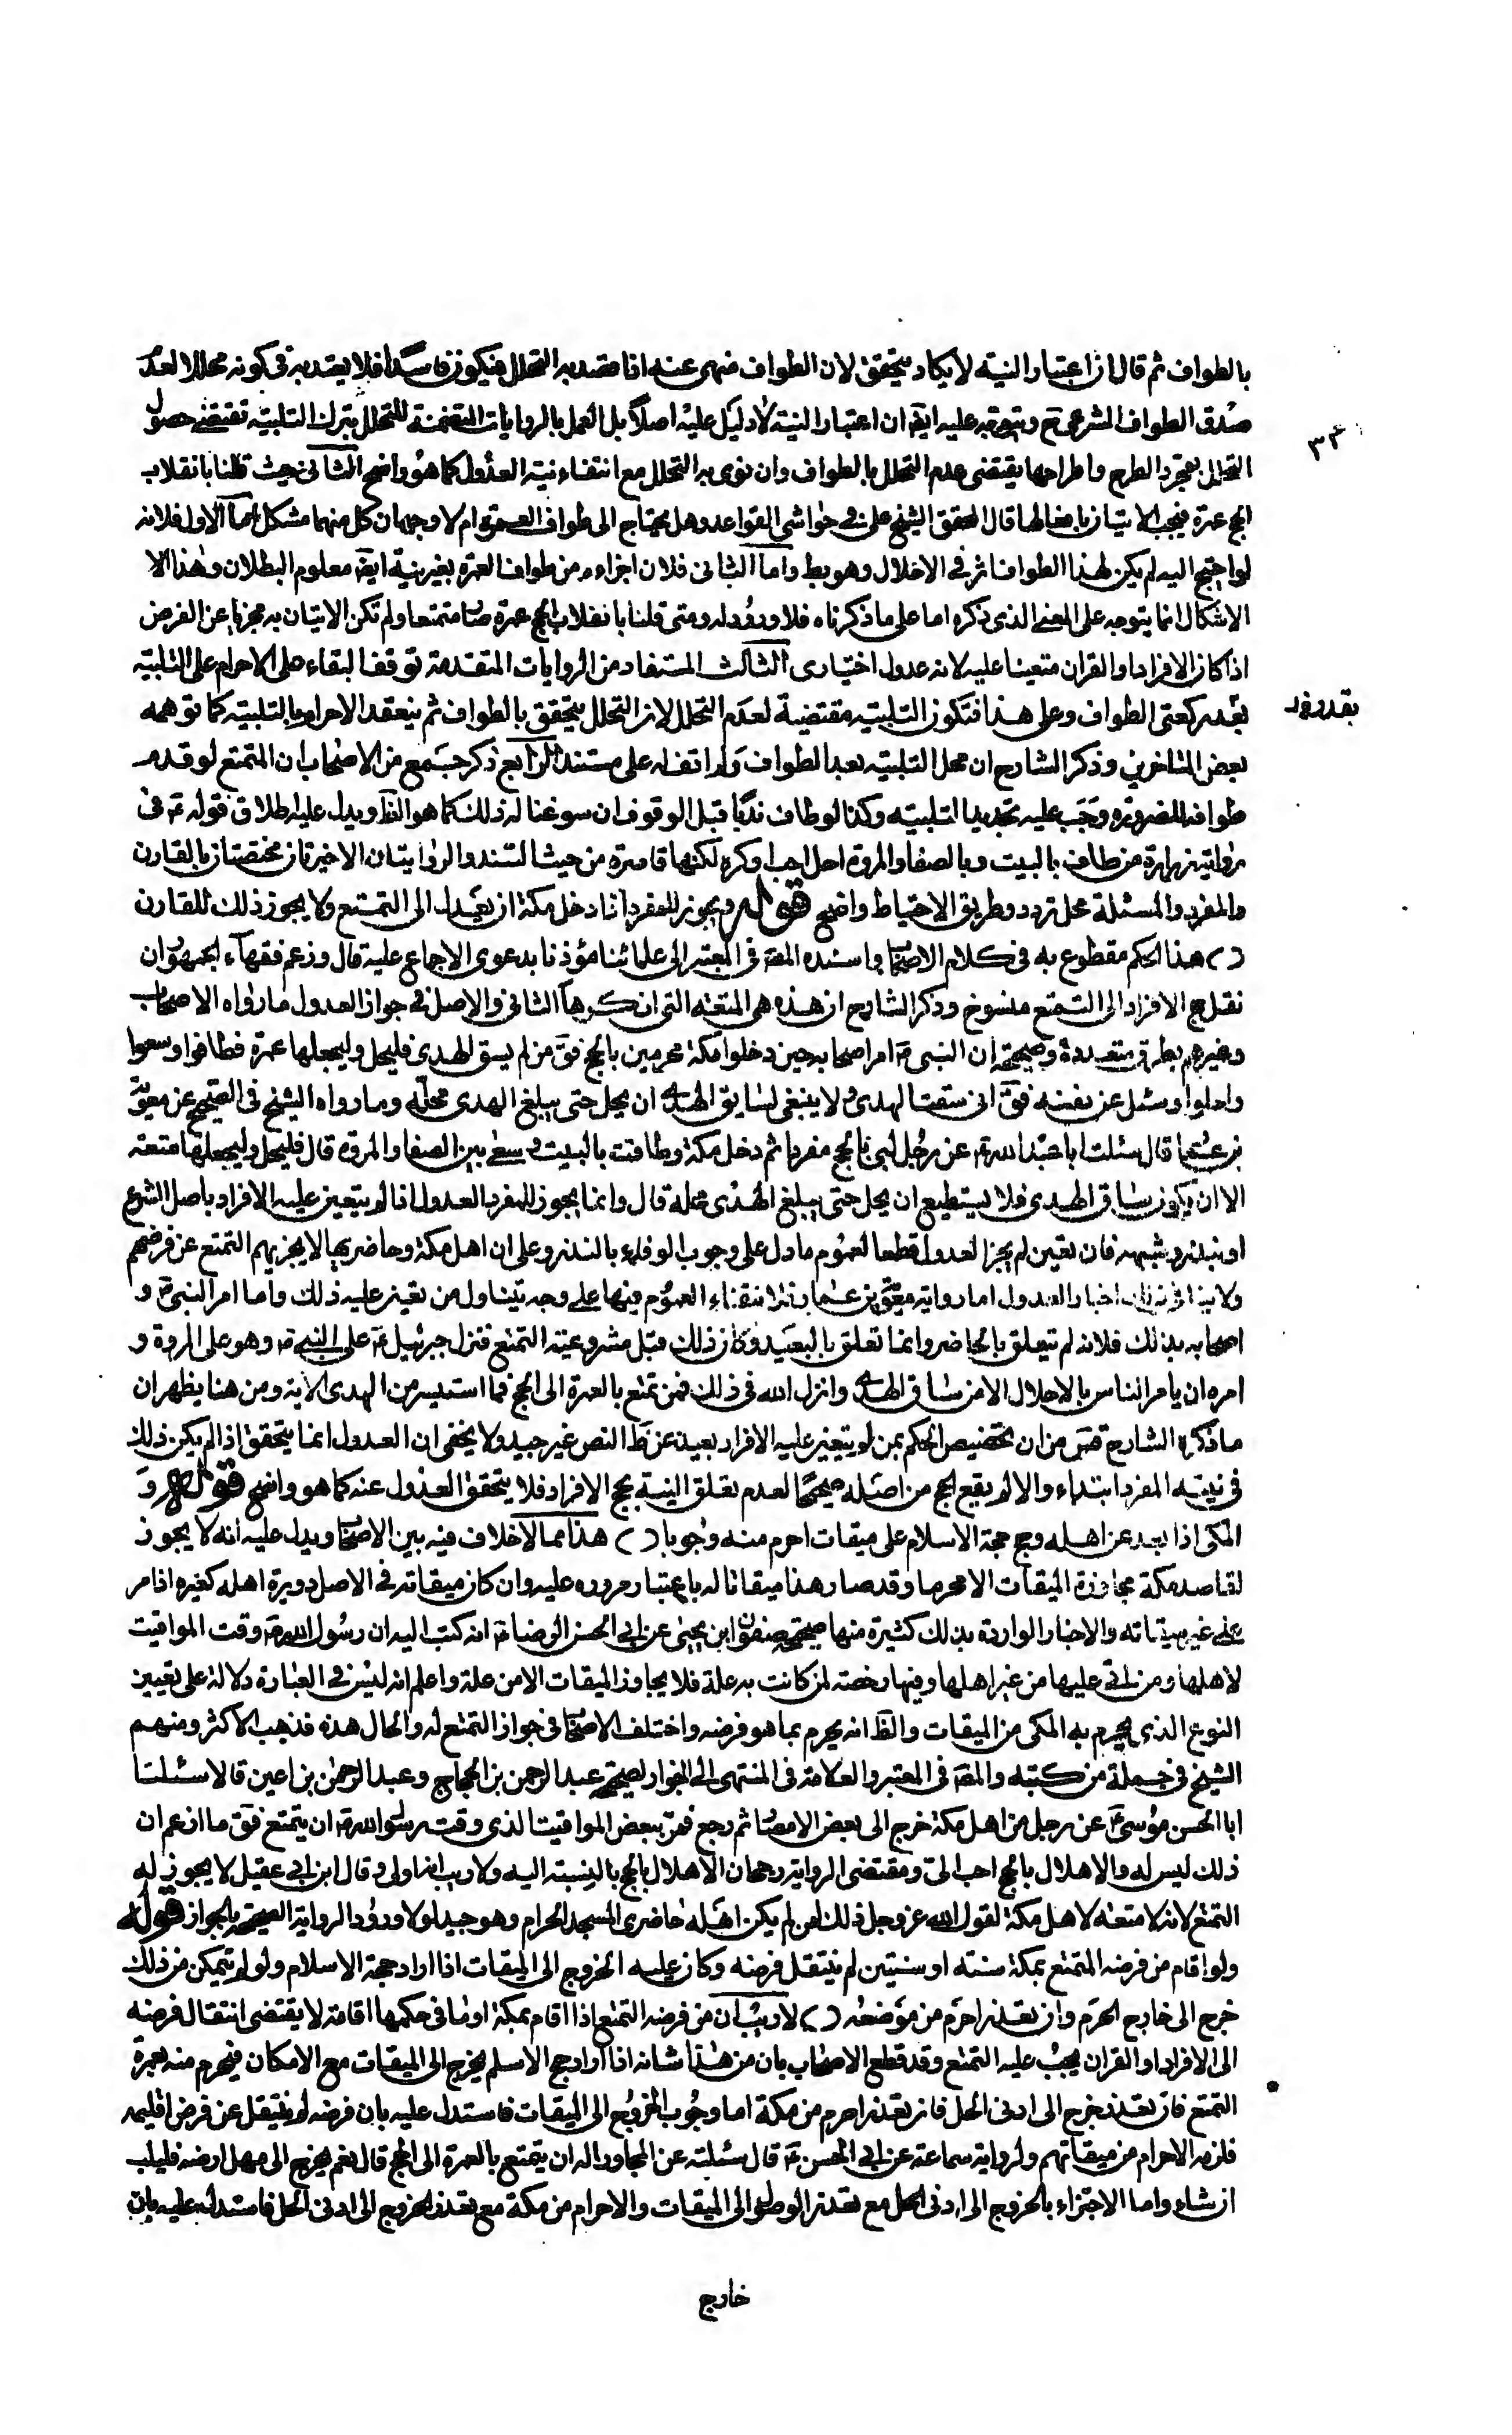 بالطواف ثم قال ان اعتبار النية لا يكاد يتحقق لان الطواف منهى عنه اذا قصد به التحلل فيكون فاسدا فلا يعتد به فى كونه محللا لعدم
صدق الطواف الشرعى ح ويتوجه عليه ايضا ان اعتبار النية لا دليل عليه اصلا بل العمل بالروايات المتضمنة للتحلل بترك التلبية تقتضى حصول
التحلل بمجرد الطرح واطراحها يقتضى عدم التحلل بالطواف وان نوى به التحلل مع انتفاء نية العدول كما هو واضح الثانى حيث قلنا بانقلاب
الحج عمرة فيجب الاتيان بافعالها قال المحقق الشيخ على فى حواشى القواعد وهل يحتاج الى طواف العمرة ام لا وجهان كل منهما مشكل اما الاول فلانه
لو احتيج اليه لم يكن لهذا الطواف اثر فى الاخلال وهو بط واما الثانى فلان اجزاءه من طواف العمرة بغير نية ايضا معلوم البطلان وهذا الا
الاشكال انما يتوجه على المعنى الذى ذكره اما على ما ذكرناه فلا ورود له ومتى قلنا بانقلاب الحج عمرة صار متمتعا ولم تكن الاتيان به مجزيا عن الفرض
اذا كان الافراد او القران متعينا عليه لانه عدول اختيارى الثالث المستفاد من الروايات المتقدمة توقف البقاء على الاحرام على التلبية
بعد ركعتى الطواف وعلى هذا فتكون التلبية مقتضية لعدم التحلل لا ان التحلل يتحقق بالطواف ثم ينعقد الاحرام بالتلبية كما توهمه
بعض المتاخرين وذكر الشارح ان محل التلبية بعد الطواف ولم اقف له على مستند الرابع ذكر جمع من الاصحاب ان المتمتع لو قدم
طوافه للضرورة وجب عليه تجديد التلبية وكذا لو طاف ندبا قبل الوقوف ان سوغنا له ذلك كما هو الظ ويدل عليه اطلاق قوله ع فى
رواية زرارة من طاف بالبيت وبالصفا والمروة احل احب او كره لكنها قاصرة من حيث السند والروايتان الاخيرتان مختصتان بالقارن
والمفرد والمسئلة محل تردد وطريق الاحتياط واضح قوله ويجوز للمفرد اذا دخل مكة ان يعدل الى التمتع ولا يجوز ذلك للقارن
( ) هذا الحكم مقطوع به فى كلام الاصحاب واسنده المصه فى المعتبر الى علمائنا مؤذنا بدعوى الاجماع عليه قال وزعم فقهاء الجمهور ان
نقل حج الافراد الى التمتع منسوخ وذكر الشارح ان هذه هى المتعة التى انكرها الثانى والاصل فى جواز العدول ما رواه الاصحاب
وغيرهم بطرق متعددة وصحيحة ان النبى ص امر اصحابه حين دخلوا مكة محرمين بالحج فق من لم يسق الهدى فليحل وليجعلها عمرة فطافوا وسعوا
واحلوا وسئل عن نفسه فق انى سقت الهدى ولا ينبغى لسايق الهدى ان يحل حتى يبلغ الهدى محله وما رواه الشيخ فى الصحيح عن معوية
بن عمار قال سئلت ابا عبد الله ع عن رجل لبى بالحج مفردا ثم دخل مكة وطاف بالبيت وسعى بين الصفا والمروة قال فليحل وليجعلها متعة
الا ان يكون ساق الهدى فلا يستطيع ان يحل حتى يبلغ الهدى محله قال وانما يجوز للمفرد العدول اذا لم يتعين عليه الافراد باصل الشرع
او بنذر وشبهه فان تعين لم يجز العدول قطعا لعموم ما دل على وجوب الوفاء بالنذر وعلى ان اهل مكة وحاضريها لا يجزيهم التمتع عن فرضهم
ولا ينافى ذلك اخبار العدول اما رواية معوية بن عمار فلانتفاء العموم فيها على وجه يتناول من تعين عليه ذلك واما امر النبى ص و
اصحابه بذلك فلانه لم يتعلق بالحاضر وانما تعلق بالبعيد وكان ذلك قبل مشروعية التمتع فنزل جبرئيل ع على النبى ص وهو على المروة و
امره ان يامر الناس بالاحلال الا من ساق الهدى وانزل الله فى ذلك فمن تمتع بالعمرة الى الحج فما استيسر من الهدى الاية ومن هنا يظهر ان
ما ذكره الشارح قس من ان تخصيص الحكم بمن لم يتعين عليه الافراد بعيد عن ظ النص غير جيد ولا يخفى ان العدول انما يتحقق اذا لم يكن ذلك
فى نية المفرد ابتداء والا لم يقع الحج من اصله صحيحا لعدم تعلق النية بحج الافراد فلا يتحقق العدول عنه كما هو واضح قوله و
المكى اذا بعد عن اهله وحج حجة الاسلام على ميقات احرم منه وجوبا ( ) هذا مما لا خلاف فيه بين الاصحاب ويدل عليه انه لا يجوز
لقاصد مكة مجاوزة الميقات الا محرما وقد صار هذا ميقاتا له باعتبار مروره عليه وان كان ميقاته فى الاصل دويرة اهله كغيره اذا مر
على غير ميقاته والاخبار الواردة بذلك كثيرة منها صحيحة صفوان ابن يحيى عن ابى الحسن الرضا ع انه كتب اليه ان رسول الله ص وقت المواقيت
لاهلها ومن اتى عليها من غير اهلها وفيها رخصة لمن كانت به علة فلا يجاوز الميقات الا من علة واعلم انه ليس فى العبارة دلالة على تعيين
النوع الذى يحرم به المكى من الميقات والظ انه يحرم بما هو فرضه واختلف الاصحاب فى جواز التمتع له والحال هذه فذهب الاكثر ومنهم
الشيخ فى جملة من كتبه والمصه فى المعتبر والعلامة فى المنتهى الى الجواز لصحيحة عبد الرحمن بن الحجاج وعبد الرحمن بن اعين قالا سئلنا
ابا الحسن موسى ع عن رجل من اهل مكة خرج الى بعض الامصار ثم رجع فمر ببعض المواقيت الذى وقت رسول الله ص ان يتمتع فق ما ازعم ان
ذلك ليس له والاهلال بالحج احب الى ومقتضى الرواية رجحان الاهلال بالحج بالنسبة اليه ولا ريب انه اولى وقال ابن ابى عقيل لا يجوز له
التمتع لانه لا متعة لاهل مكة لقول الله عز وجل ذلك لمن لم يكن اهله حاضرى المسجد الحرام وهو جيد لولا ورود الرواية الصحيحة بالجواز قوله
ولو اقام من فرضه المتمتع بمكة سنته او سنتين لم ينتقل فرضه وكان عليه الخروج الى الميقات اذا اراد حجة الاسلام ولو لم يتمكن من ذلك
خرج الى خارج الحرم وان تعذر احرم من موضعه ( ) لا ريب ان من فرضه التمتع اذا اقام بمكة او ما فى حكمها اقامة لا يقتضى انتقال فرضه
الى الافراد او القران يجب عليه التمتع وقد قطع الاصحاب بان من هذا شانه اذا اراد حج الاسلم يخرج الى الميقات مع الامكان فيحرم منه بعمرة
التمتع فان تعذر خرج الى ادنى الحل فان تعذر احرم من مكة اما وجوب الخروج الى الميقات فاستدل عليه بان فرضه لم ينتقل عن فرض اقليمه
فلزمه الاحرام من ميقاتهم ولرواية سماعة عن ابى الحسن ع قال سئلته عن المجاور اله ان يتمتع بالعمرة الى الحج قال نعم يخرج الى مهل ارضه فليلب
ان شاء واما الاجتزاء بالخروج الى ادنى الحل مع تعذر الوصول الى الميقات والاحرام من مكة مع تعذر الخروج الى ادنى الحل فاستدل عليه بان
خارج